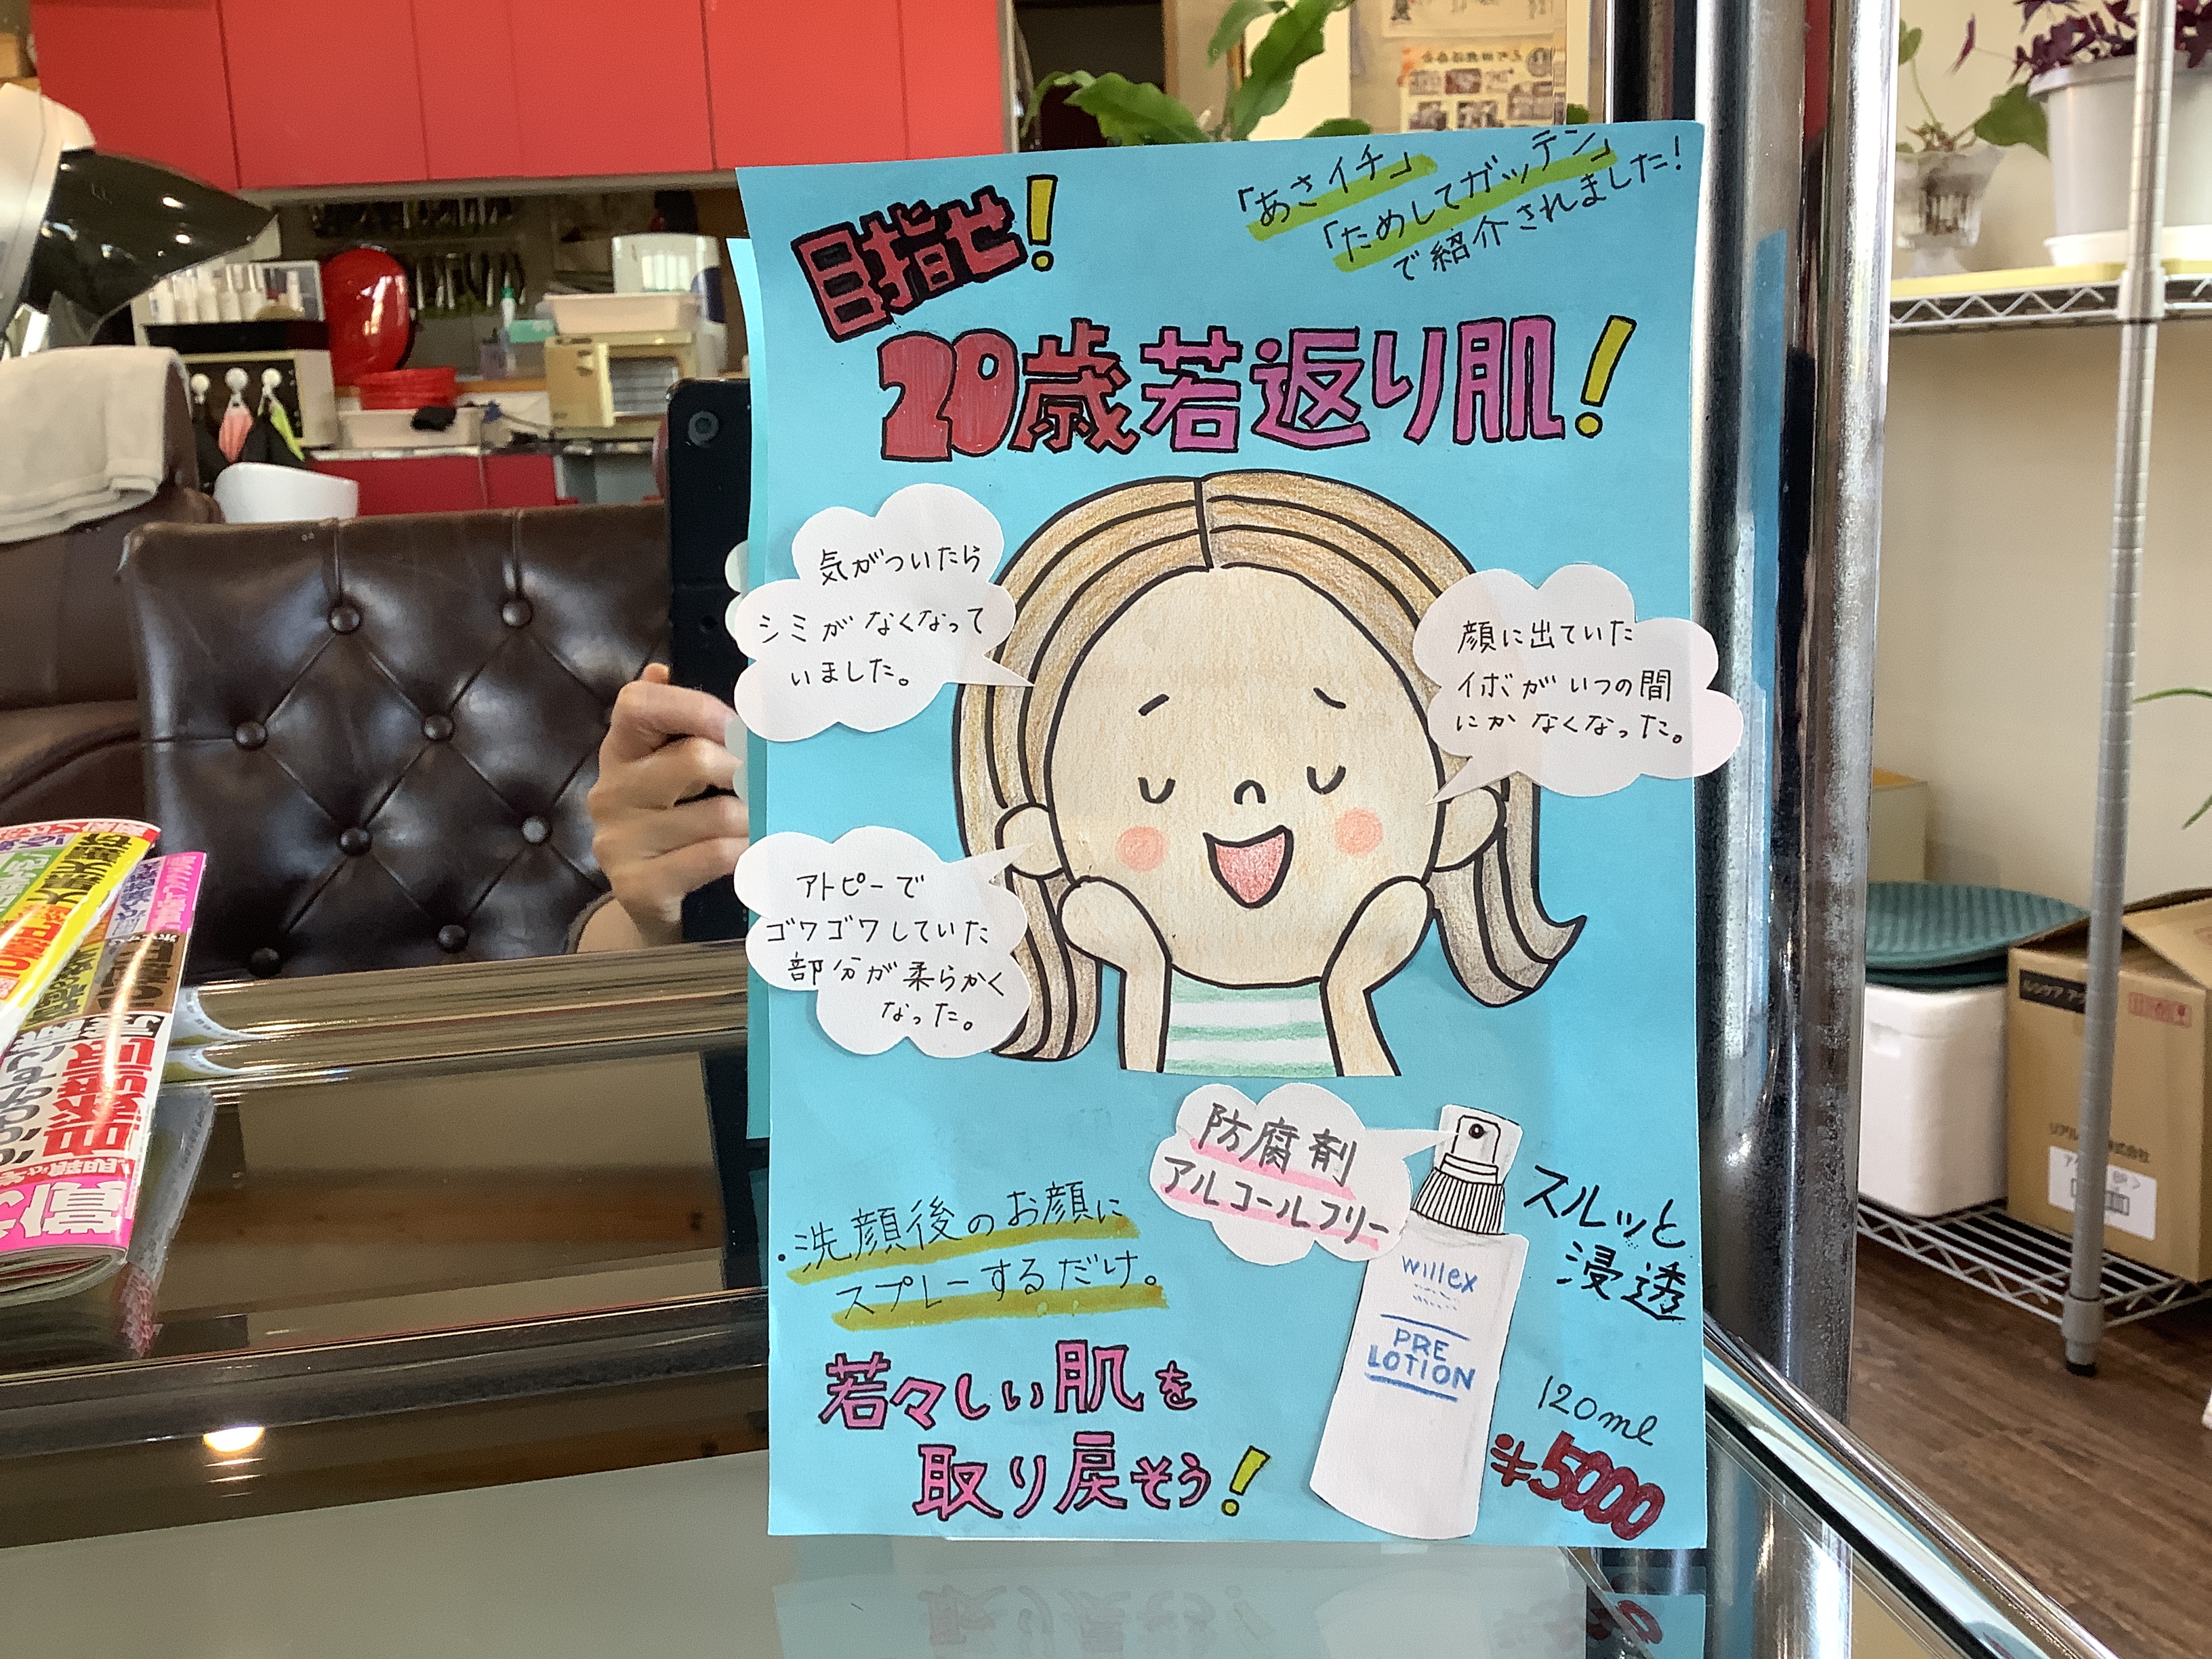 目指せ!
「あさイチ」
「ためしてガッテン」
で紹介されました!
20歳若返り肌!
気がついたら
シミがなくなって
いました。
顔に出ていた
イボがいつの間
にかなくなった。
アトピーで
ゴワゴワしていた
部分が柔らかく
なった。
防腐剤
アルコールフリー
・洗顔後のお顔に
スプレーするだけ。
スルッと
浸透
willex
PRE
LOTION
若々しい肌を
取り戻そう!
120ml
¥5000